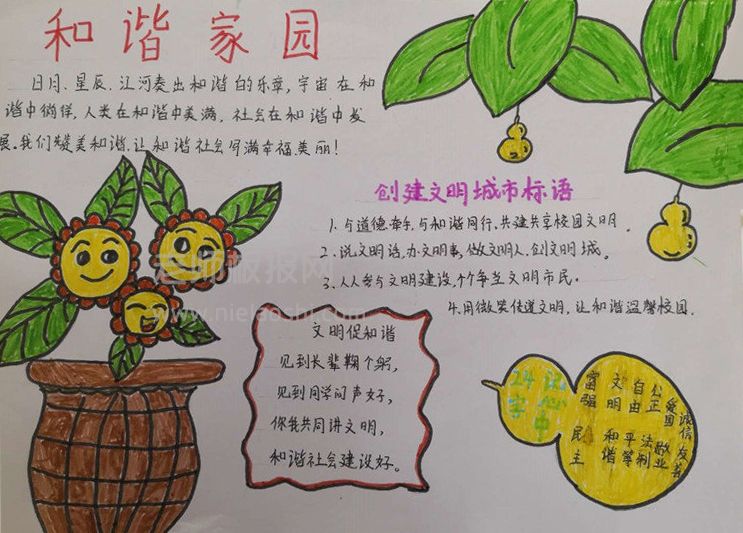 和谐家园
日月、星辰、江河奏出和谐的乐章,宇宙在和
谐中徜徉,人类在和谐中美满,社会在和谐中发
展。我们赞美和谐,让和谐社会写满幸福美丽!
创建文明城市标语
1.与道德牵手,与和谐同行,共建共享校园文明。
2.说文明话,办文明事,做文明人,创文明城。
3.人人参与文明建设,个个争当文明市民。
4.用微笑传递文明,让和谐温馨校园.
文明促和谐
见到长辈鞠个躬,
见到同学问声好,
你我共同讲文明,
和谐社会建设好。
24
字
中
富强
民主
文明
和谐
自由
平等
公正
法制
爱国
敬业
诚信
友善
老师板报网
www.nielaoshi.com